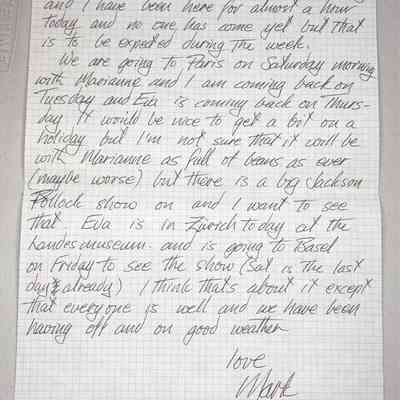 and I have been here for almost a hour
today and no one has come yet but that
is to be expected during the week.
We are going to Paris on Saturday morning
with Marianne and I am coming back on
Tuesday and Eva is coming back on Thurs-
day It would be nice to get a bit on a
holiday but I'm not sure that it will be
with Marianne as full of beans as ever
(maybe worse) but there is a big Jackson
Pollock show on and I want to see
that Eva is in Zürich today at the
Landesmuseum. and is going to Basel
on Friday to see the show (Sat. is the last
day already) I think thats about it except
that everyone is well and we have been
having off and on good weather
love
Mark